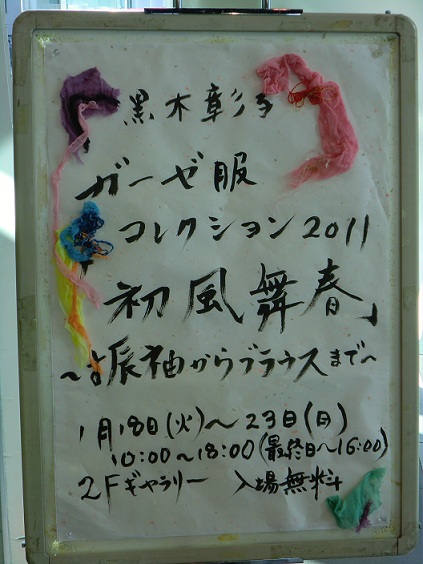 黒木彰子
ガーゼ服
コレクション2011
初風舞春」
~振袖からブラウスまで~
1月18日(火)~23日(日)
10:00~18:00(最終日~16:00)
2Fギャラリー 入場無料